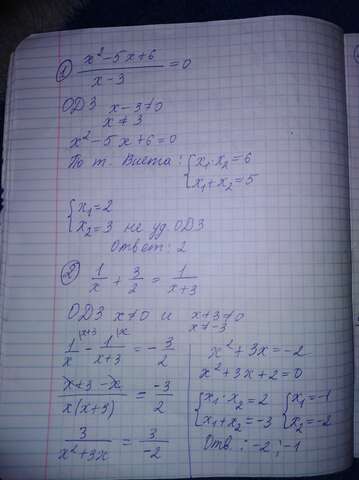 ① (x²-5x+6)/(x-3) = 0
ОДЗ x-3≠0
x≠3
x²-5x+6=0
По т. Виета: {x₁·x₂=6
x₁+x₂=5
{x₁=2
x₂=3 не уд. ОДЗ
Ответ: 2
② 1/x + 3/2 = 1/(x+3)
ОДЗ x≠0 и x+3≠0
x≠-3
1/x |x+3 - 1/(x+3) |x = -3/2
(x+3-x)/(x(x+3)) = -3/2
3/(x²+3x) = 3/-2
x²+3x=-2
x²+3x+2=0
{x₁·x₂=2 {x₁=-1
x₁+x₂=-3 x₂=-2
Отв.: -2; -1